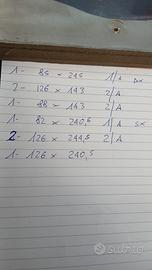 1 - 85 x 245 1/A DX
2 - 126 x 143 2/A
1 - 88 x 143 2/A
1 - 82 x 240,5 1/A SX
2 - 126 x 244,5 2/A
1 - 126 x 240,5
subito